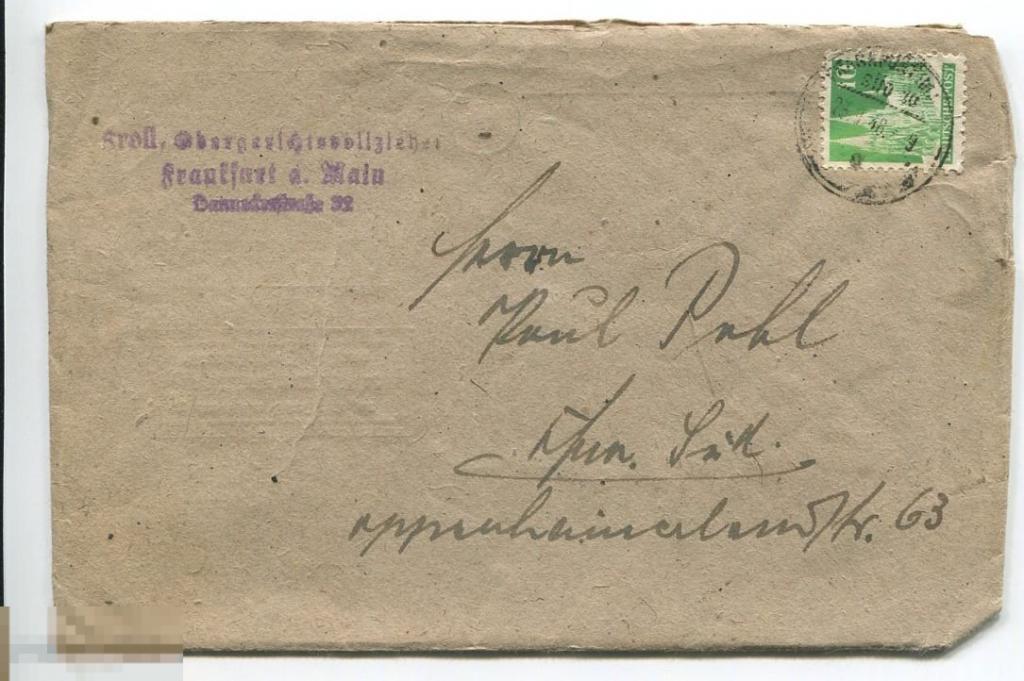 Kroll, Obergerichtsvollzieher
Frankfurt a. Main
Danneckerstraße 32
10
Herrn
Paul Pohl
Ffm. Süd.
Oppenheimerlandstr. 63